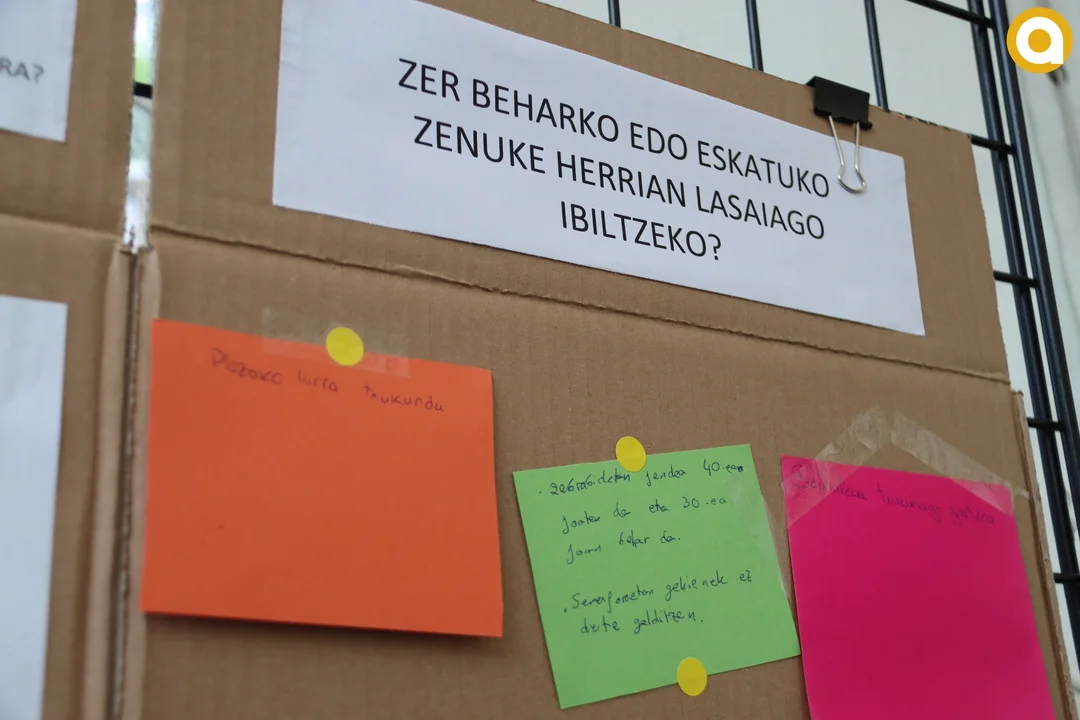 RA?
ZER BEHARKO EDO ESKATUKO
ZENUKE HERRIAN LASAIAGO
IBILTZEKO?
Plazako lurra txukundu
. zebrabidetan jendea 40.ean
joaten da eta 30.ea
joan behar da.
. Semaforoetan gehienek ez
dute gelditzen.
a